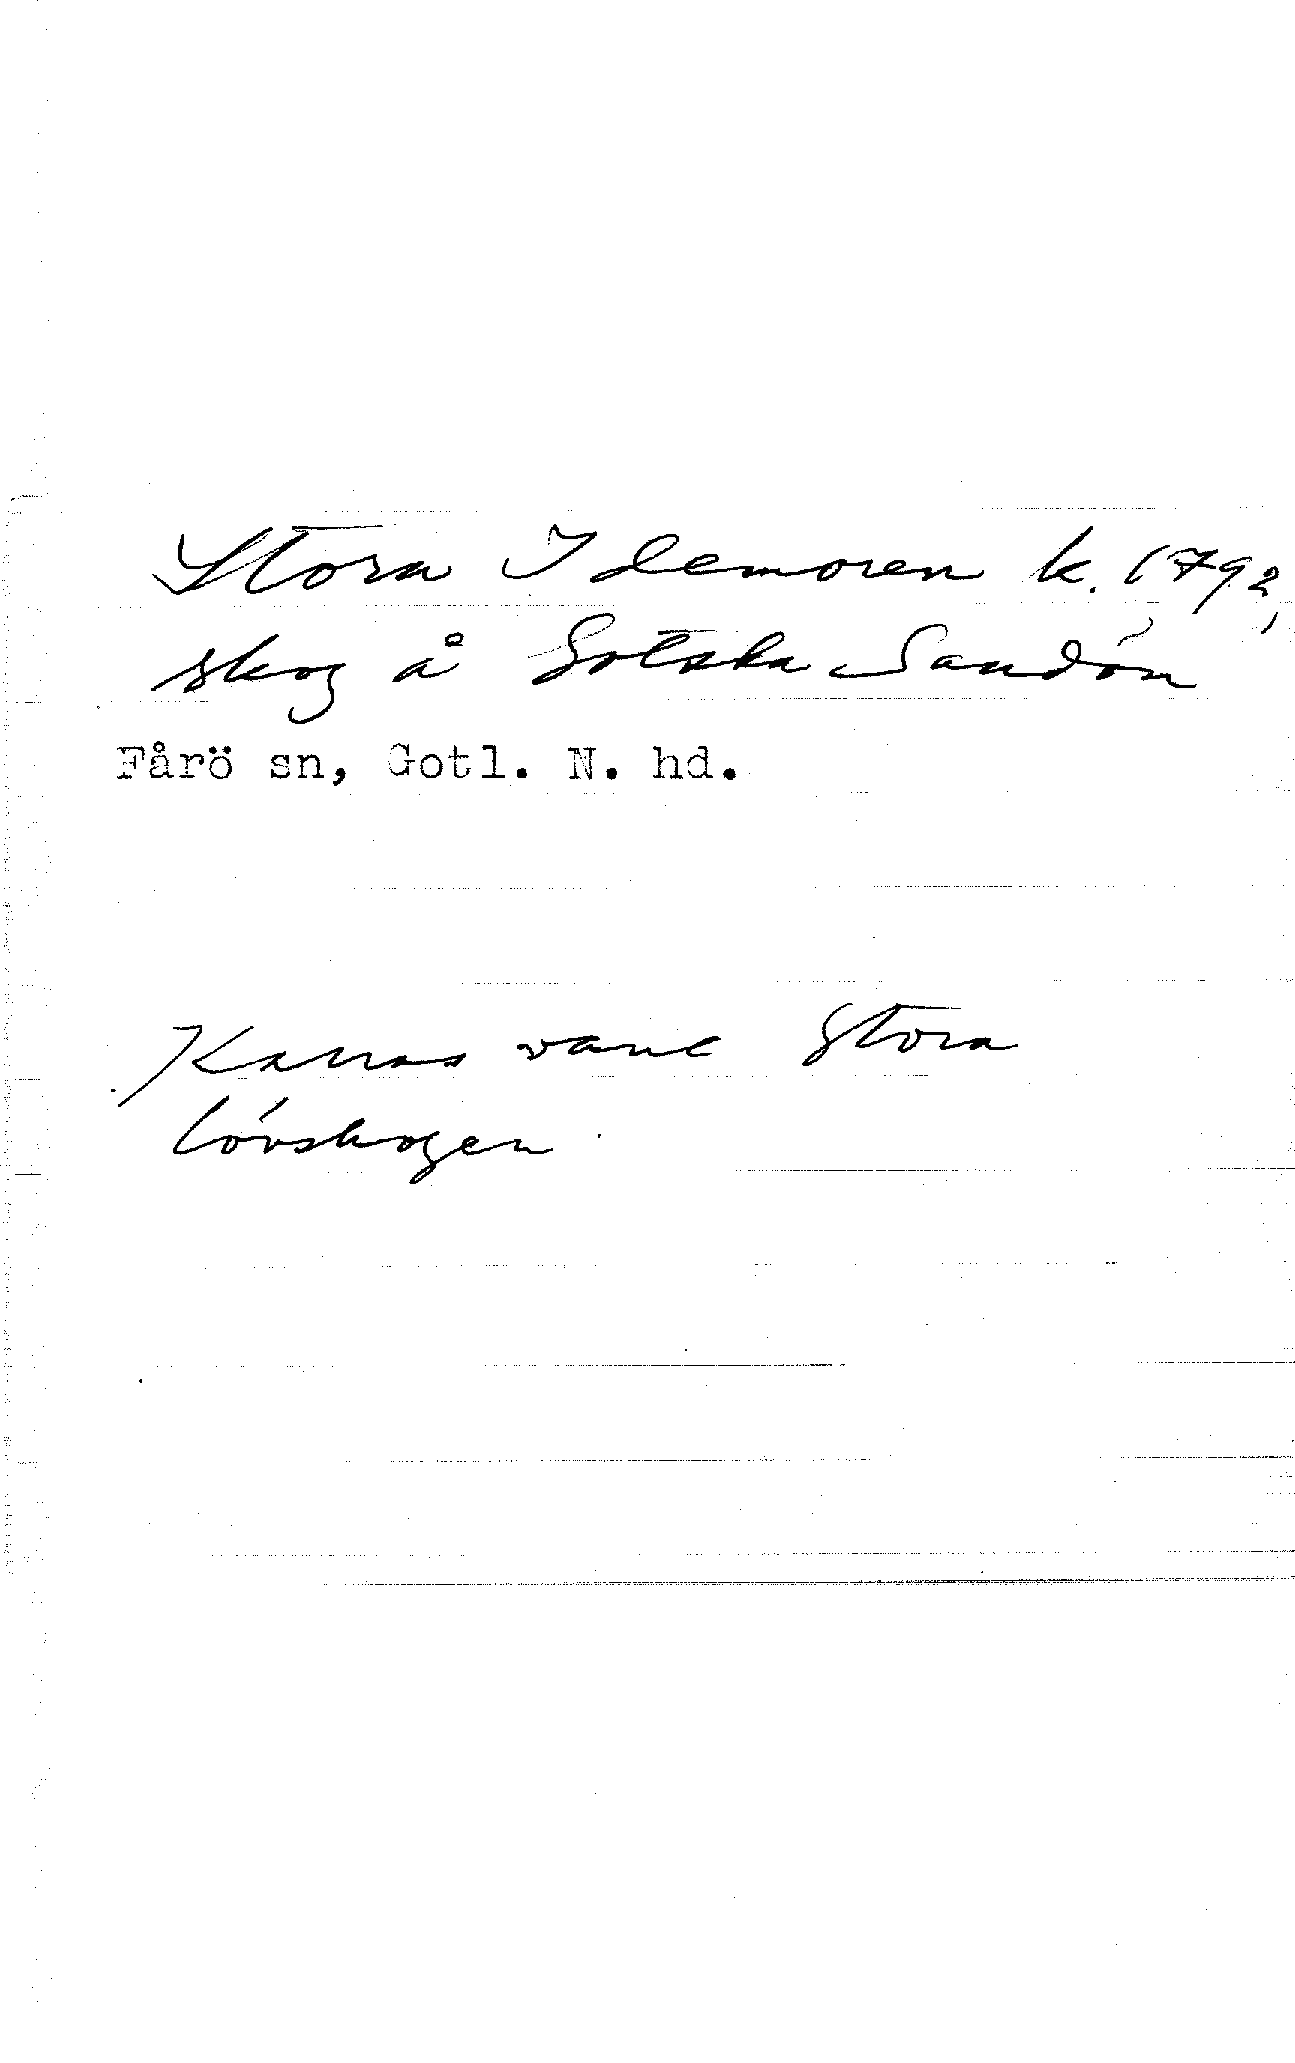 Stora Idemoren k. 1792,
skog å Gotska Sandön
Fårö sn, Gotl. N. hd.
Kallas vanl Stora
lövskogen